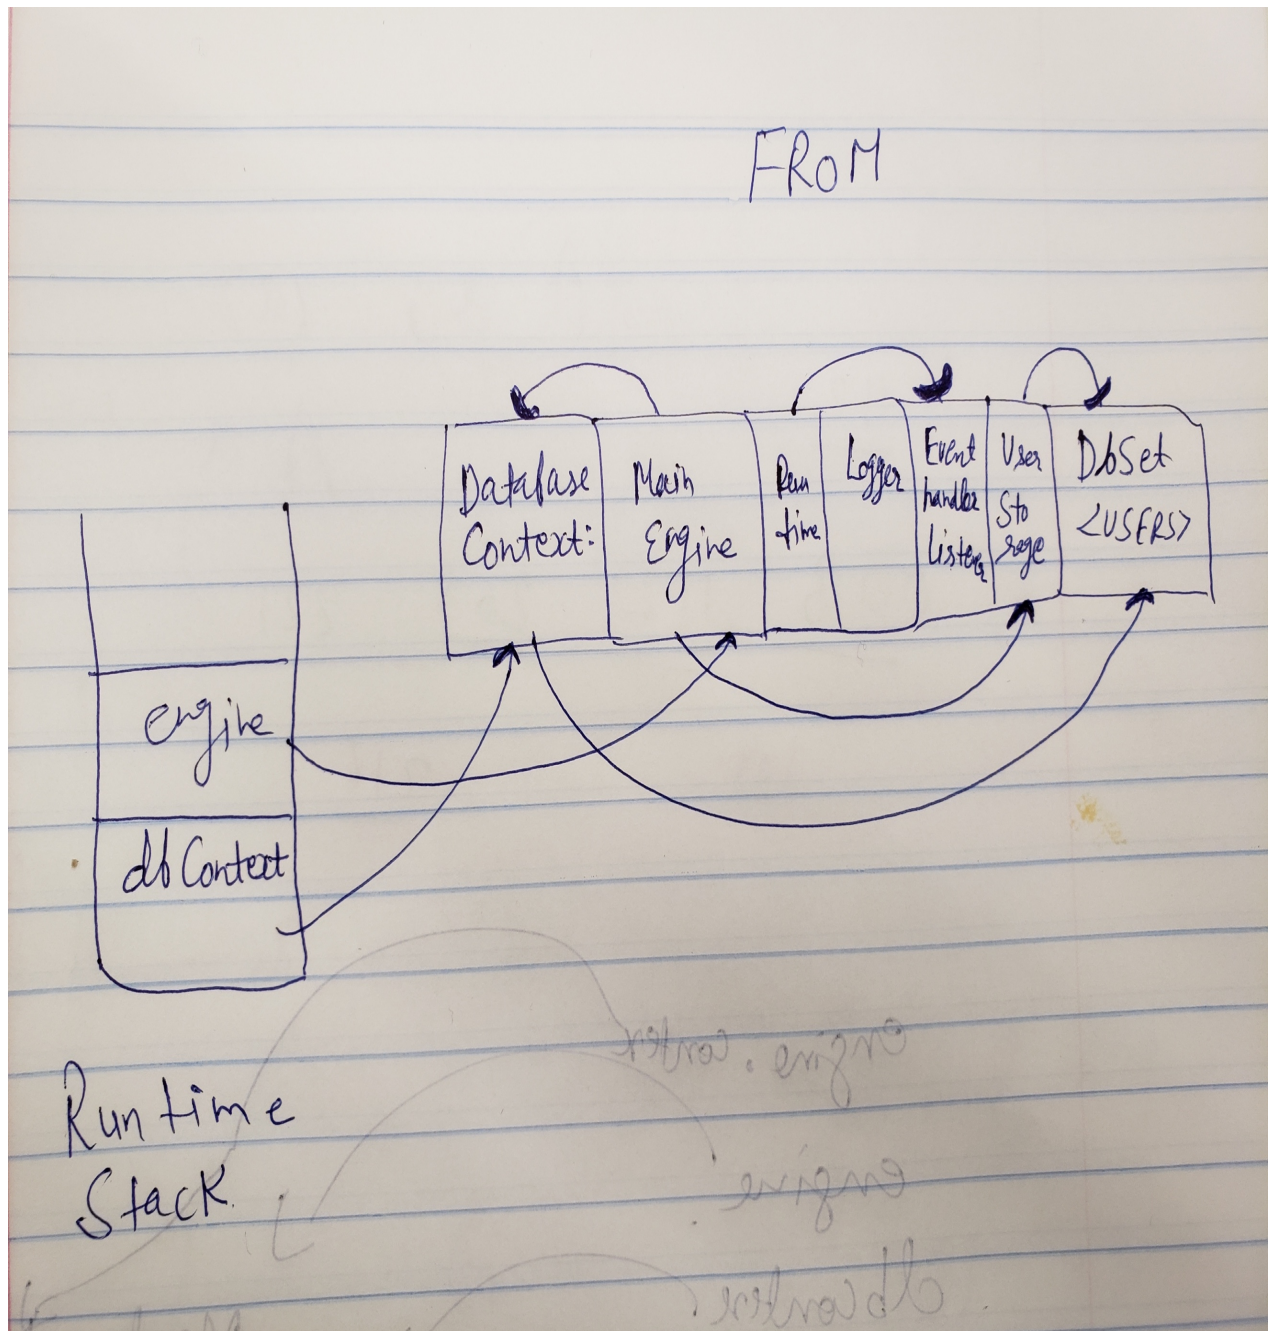 FROM
Database
Context:
Main
Engine
Run
time
Logger
Event
handler
Listener
User
Sto
rage
DbSet
<USERS>
engine
dbContext
Run time
Stack
engine.contex
engine
dbcontex